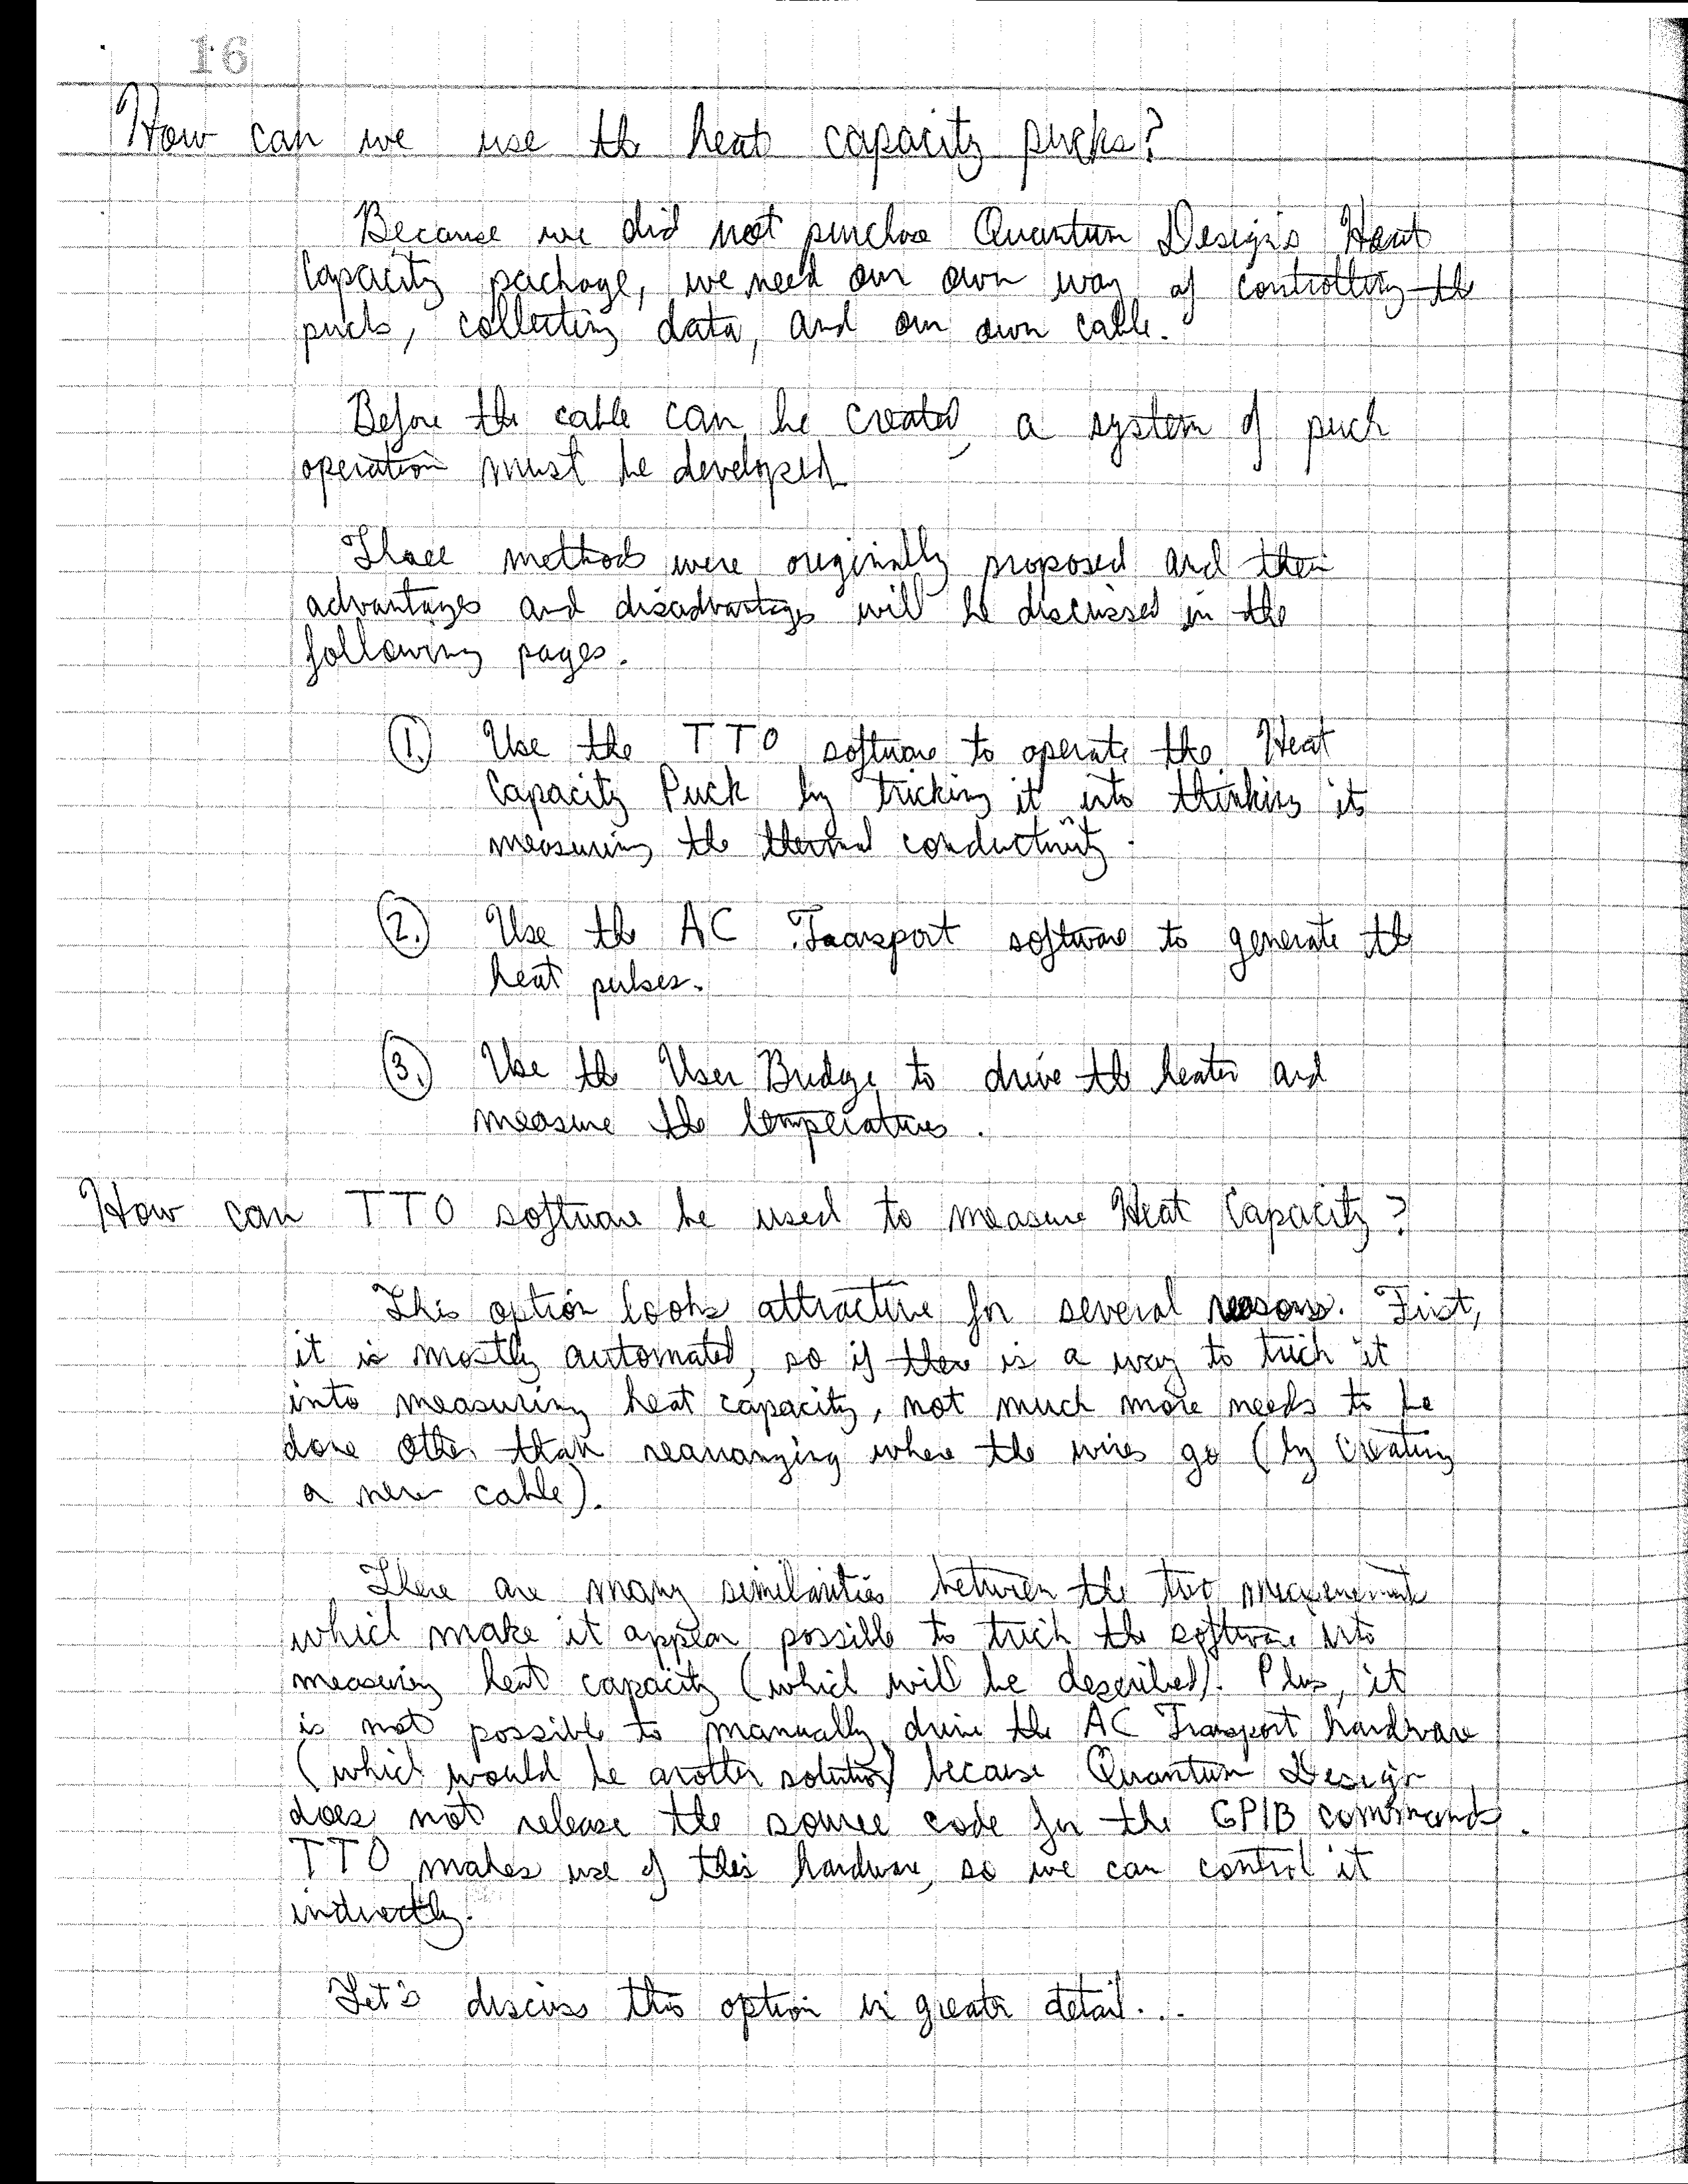 16
How can we use the heat capacity pucks?
Because we did not purchase Quantum Design's Heat
Capacity package, we need our own way of controlling the
pucks, collecting data, and our own cable.
Before the cable can be created, a system of puck
operation must be developed
Three methods were originally proposed and their
advantages and disadvantages will be discussed in the
following pages.
1. Use the TTO software to operate the Heat
Capacity Puck by tricking it into thinking its
measuring the thermal conductivity.
2. Use the AC Transport software to generate the
heat pulses.
3. Use the User Bridge to drive the heater and
measure the temperatures.
How can TTO software be used to measure Heat Capacity?
This option looks attractive for several reasons. First,
it is mostly automated, so if there is a way to trick it
into measuring heat capacity, not much more needs to be
done other than rearranging where the wires go (by creating
a new cable).
There are many similarities between the two measurements
which make it appear possible to trick the software into
measuring heat capacity (which will be described). Plus, it
is not possible to manually drive the AC Transport hardware
(which would be another solution) because Quantum Design
does not release the source code for the GPIB commands.
TTO makes use of this hardware, so we can control it
indirectly.
Let's discuss this option in greater detail...